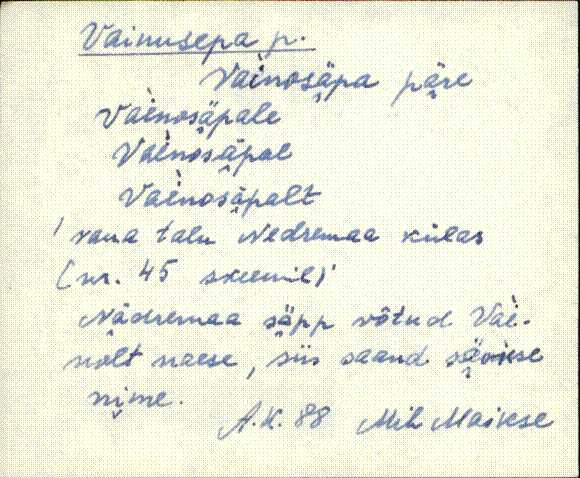 Vainusepa p.
Vainosäpa päre
Vainosäpale
Vainosäpal
Vainosäpalt
' vana talu Nedremaa külas
(nr. 45 skeemil)'
Nädremaa säpp võtud Vai-
nolt naese, siis saand säokse
nime.
A.K. 88 Mih Maikse